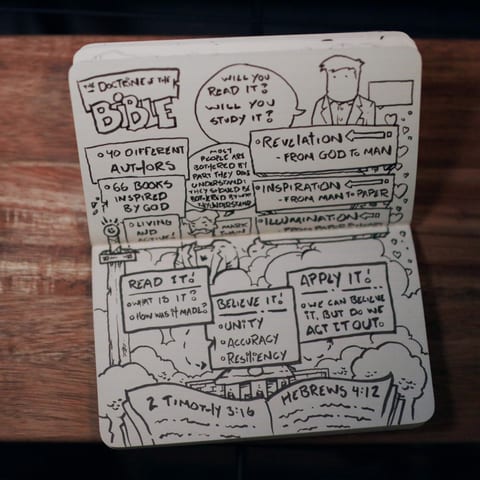 THE DOCTRINE OF THE
BIBLE
WILL YOU
READ IT?
WILL YOU
STUDY IT?
40 DIFFERENT
AUTHORS
66 BOOKS
INSPIRED
BY GOD
LIVING
AND
MOST
PEOPLE ARE
BOTHERED BY
PART THEY DONT
UNDERSTAND.
THEY SHOULD BE
BOTHERED BY
UNDERSTAND
MARK
REVELATION
- FROM GOD TO MAN
INSPIRATION
- FROM MAN TO PAPER
ILLUMINATION
- FROM PAPER
READ IT!
WHAT IS IT?
HOW WAS IT MADE?
BELIEVE IT!
UNITY
ACCURACY
RESILIENCY
APPLY IT!
WE CAN BELIEVE
IT, BUT DO WE
ACT IT OUT
2 TIMOTHY 3:16
HEBREWS 4:12